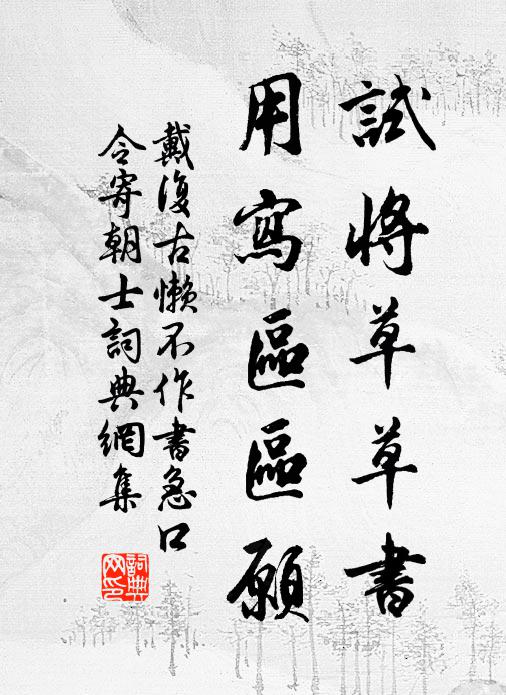 試將草草書
用寫區區願
戴復古懶不作書急口
令寄朝士詞典網集
詞典
网印